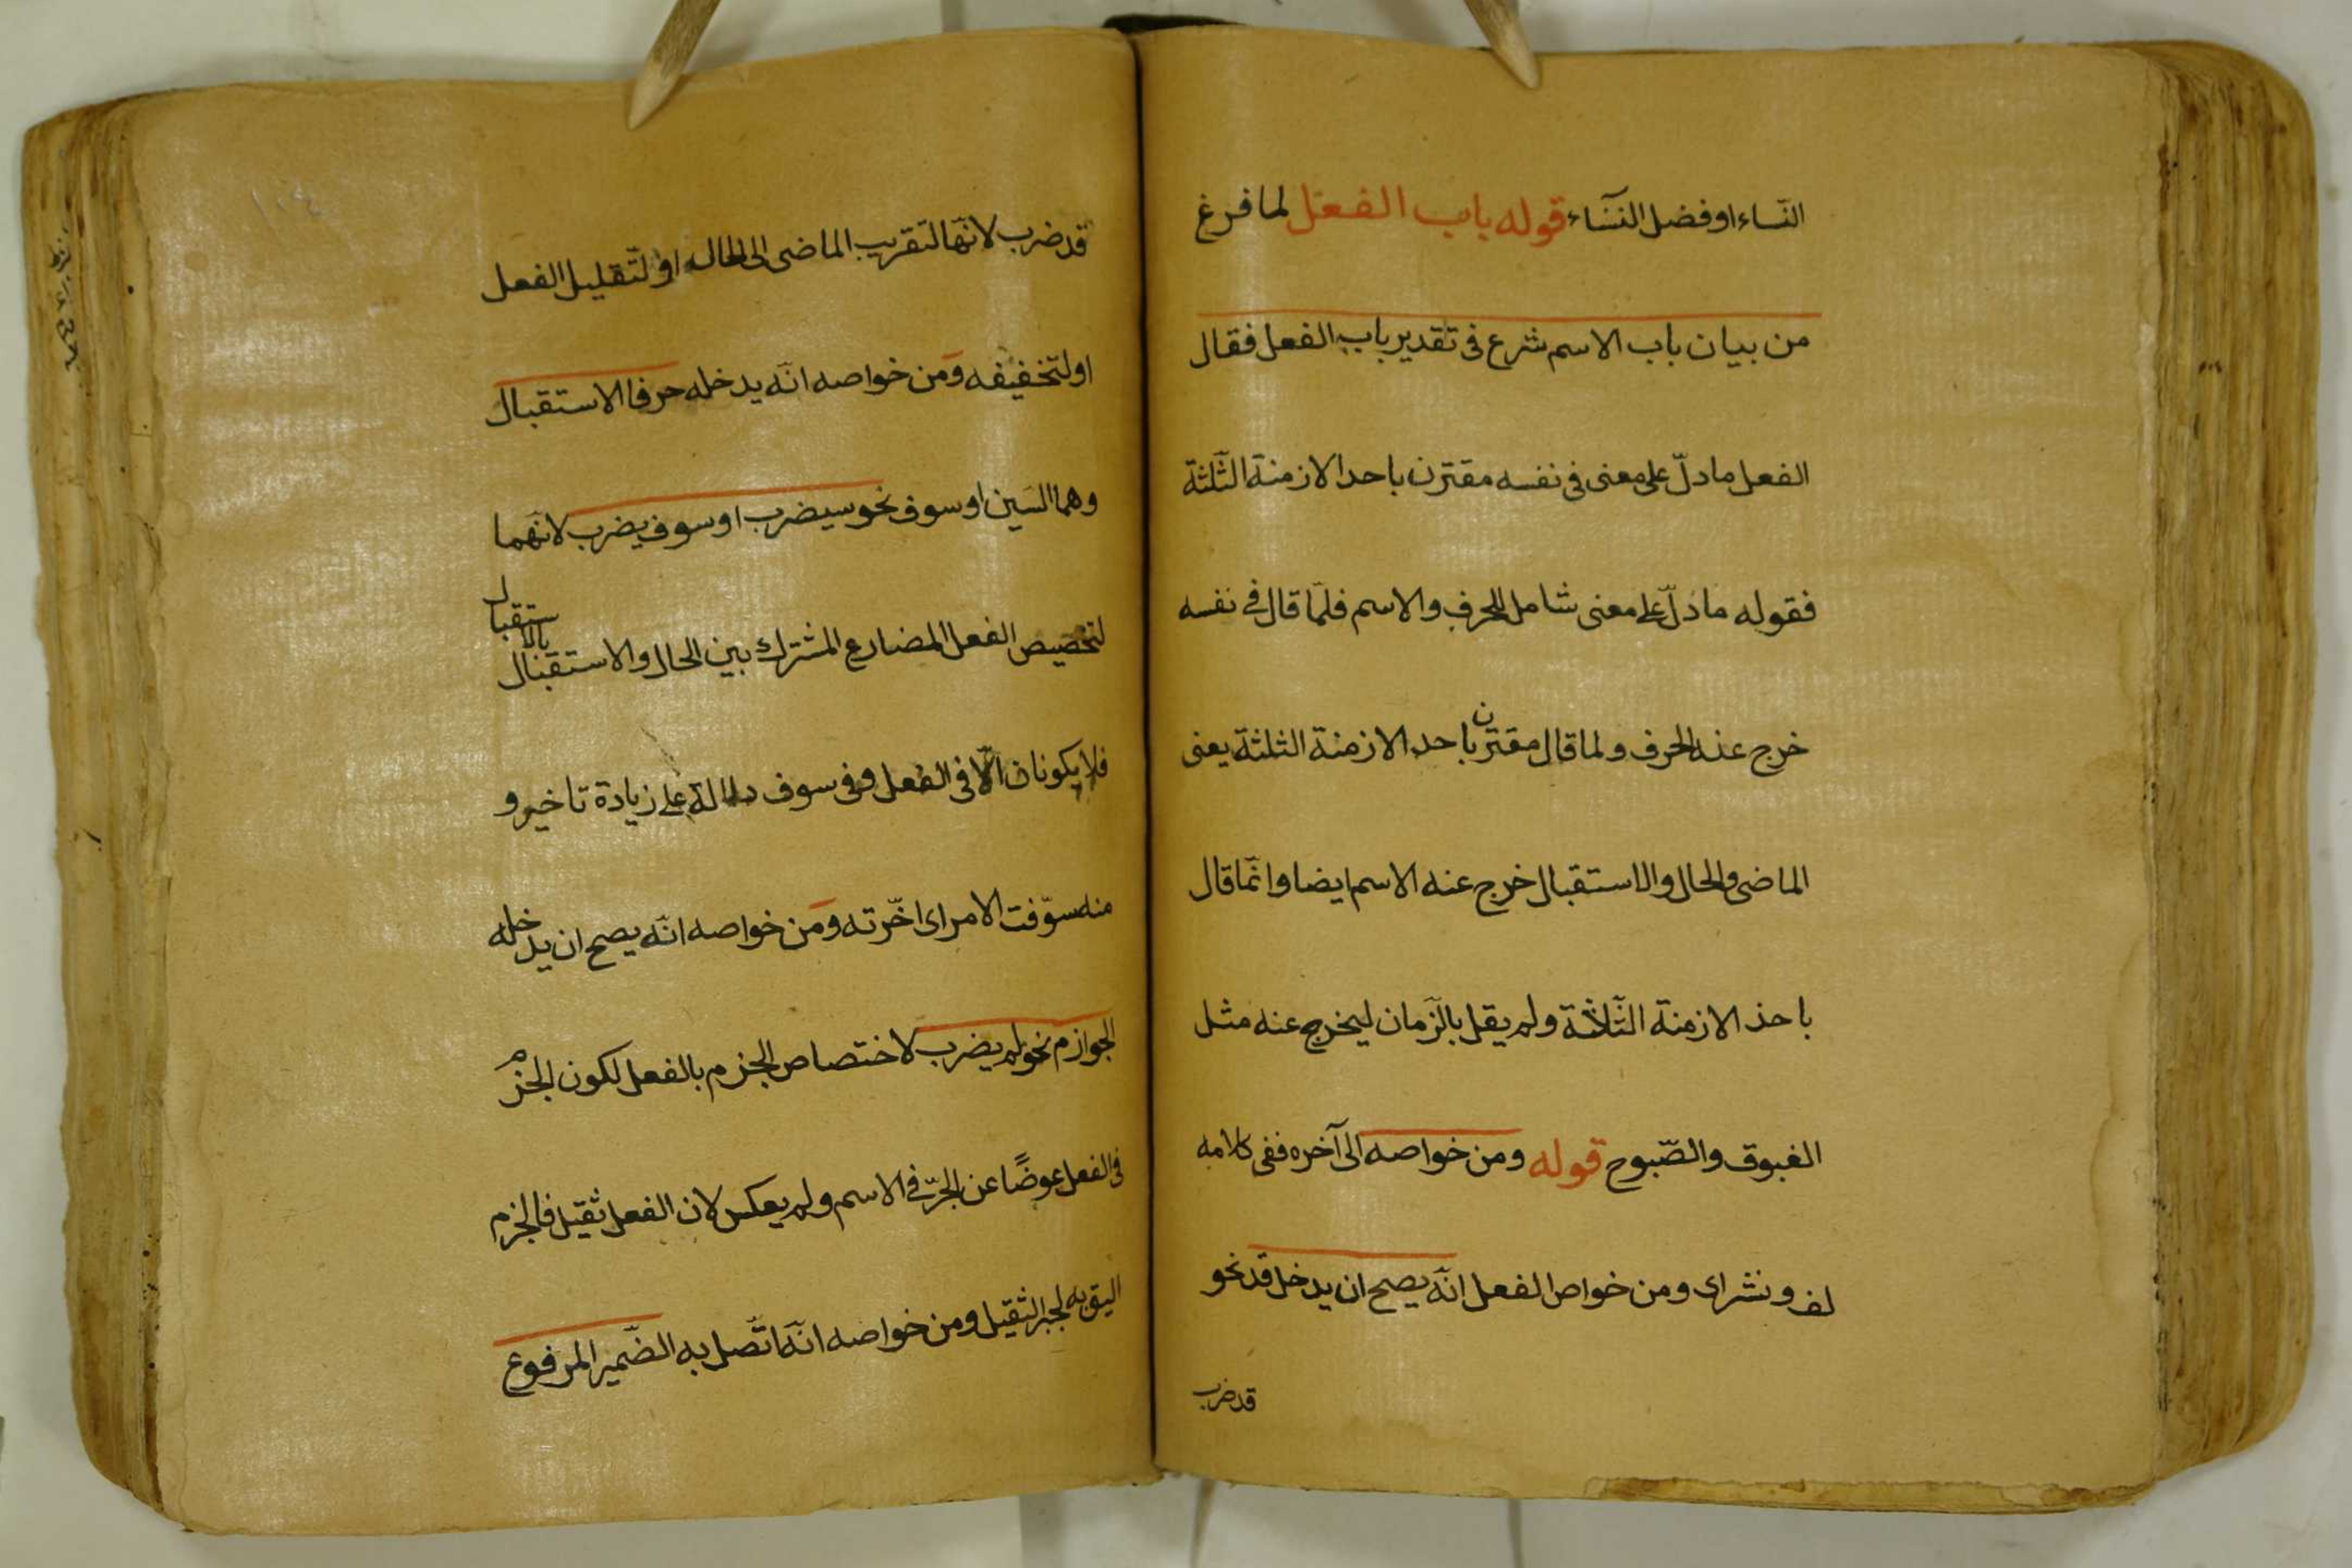 النّساء او فضل النسّاء قوله باب الفعل لما فرغ
من بيان باب الاسم شرع فى تقدير باب الفعل فقال
الفعل ما دلّ على معنى فى نفسه مقترن باحد الازمنة الثّلثة
فقوله ما دلّ على معنى شامل للحرف والاسم فلمّا قال فى نفسه
خرج عنه الحرف ولما قال مقترن باحد الازمنة الثلثة يعنى
الماضى والحال والاستقبال خرج عنه الاسم ايضا وانّما قال
باحد الازمنة الثّلاثة ولم يقل بالزّمان ليخرج عنه مثل
الغبوق والصّبوح قوله ومن خواصه الى آخره ففى كلامه
لف ونشر اى ومن خواص الفعل انّه يصح ان يدخل قد نحو
قد ضرب
قد ضرب لانّها لتقريب الماضى الى الحال او لتّقليل الفعل
او لتّخفيفه ومن خواصه انّه يدخله حرفا الاستقبال
وهما السّين او سوف نحو سيضرب او سوف يضرب لانّهما
لتخصيص الفعل المضارع المشترك بين الحال والاستقبال بالاستقبال
فلا يكونان الّا فى الفعل وفى سوف دلالة على زيادة تاخير و
منه سوّفت الامر اى اخّرته ومن خواصه انّه يصح ان يدخله
الجوازم نحو لم يضرب لاختصاص الجزم بالفعل لكون الجزم
فى الفعل عوضًا عن الجرّ فى الاسم ولم يعكس لان الفعل ثقيل فالجزم
اليق به لجبر الثقيل ومن خواصه انّه اتّصل به الضّمير المرفوع